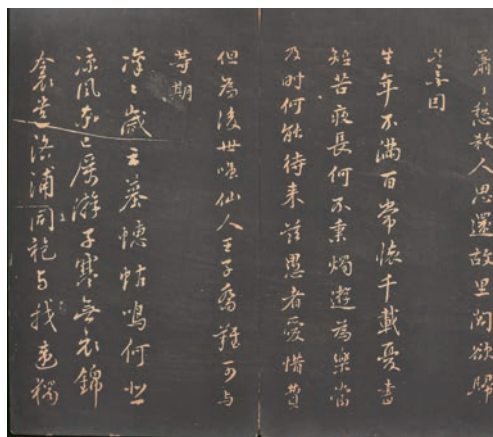 蕭々愁殺人思還故里閭欲歸
道無因
生年不滿百常懷千載憂晝
短苦夜長何不秉燭遊為樂當
及时何能待来茲愚者愛惜費
但為後世嗤仙人王子喬難可与
等期
凛々歲云暮蟪蛄鳴何悲
凉風率已厲游子寒無衣錦
衾遺洛浦同袍与我違獨